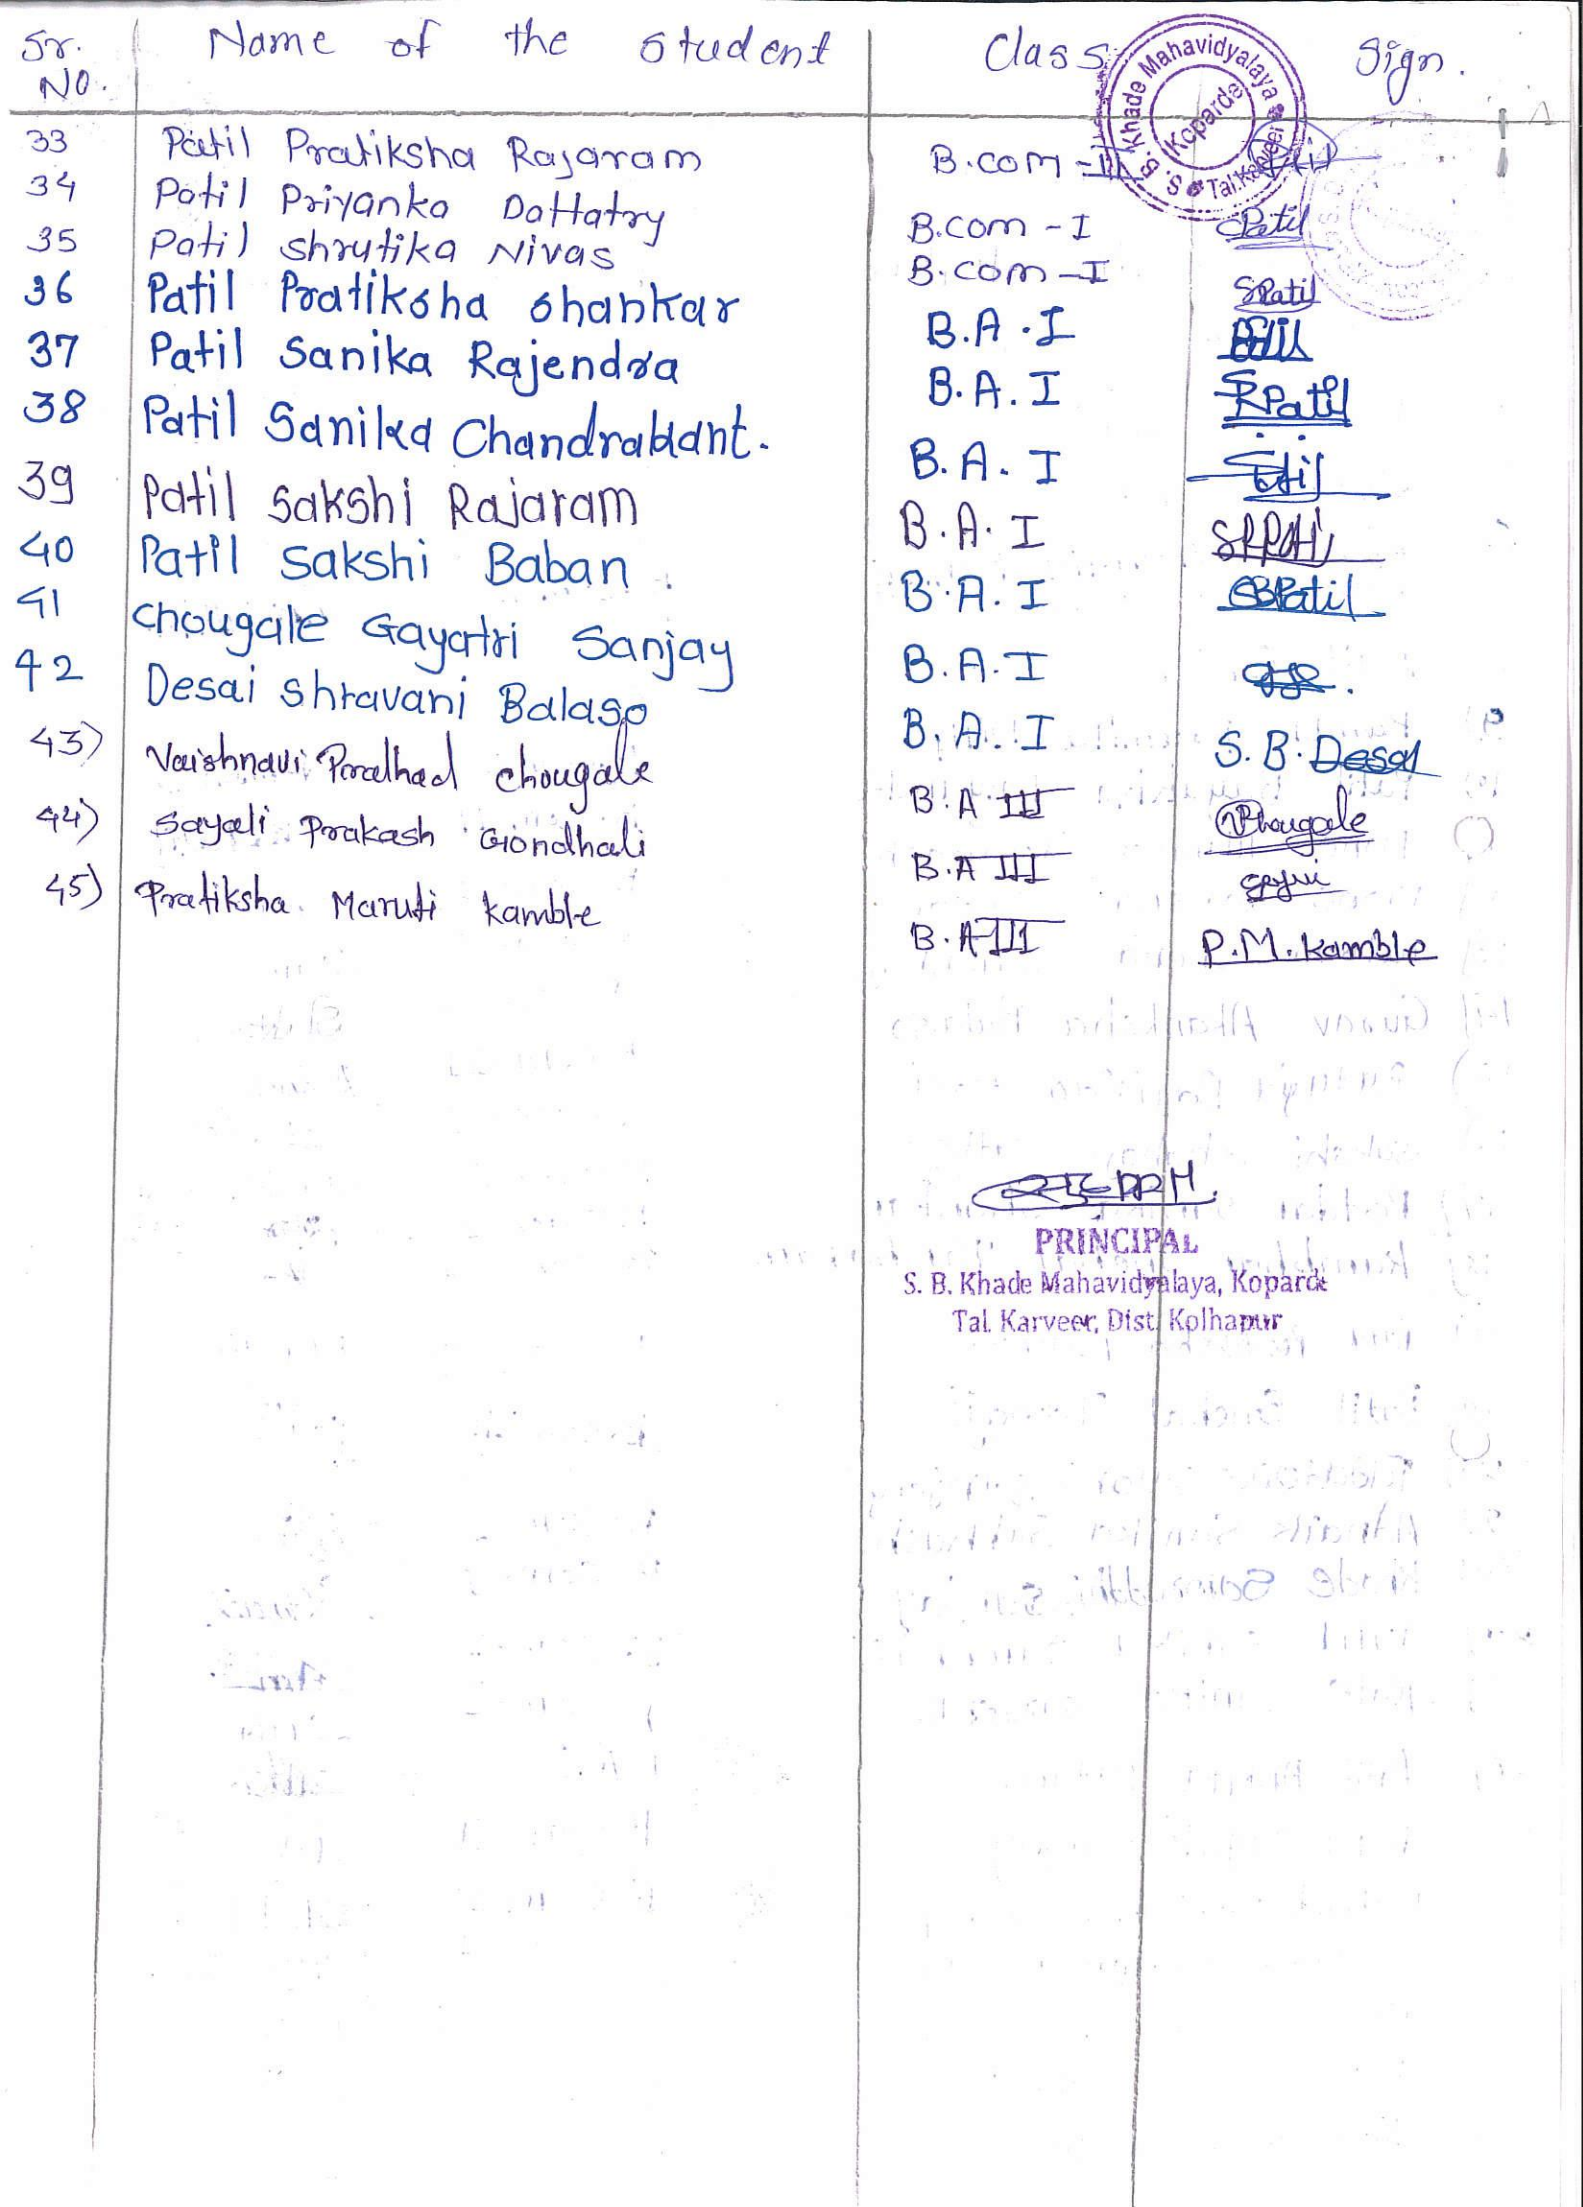 Sr. No. Name of the student Class Sign.
S. B. Khade Mahavidyalaya Koparde Tal. Karveer
33 Patil Pratiksha Rajaram B.com -II
34 Patil Priyanka Dattatry B.com - I Patil
35 Patil shrutika Nivas B.com - I SPatil
36 Patil Pratiksha shankar B.A.I
37 Patil Sanika Rajendra B.A.I SRPatil
38 Patil Sanika Chandrakant. B.A.I
39 Patil Sakshi Rajaram B.A.I SRPatil
40 Patil Sakshi Baban B.A.I SBPatil
41 Chougale Gayatri Sanjay B.A.I
42 Desai Shravani Balaso B.A.I S.B.Desai
43) Vaishnavi Pralhad chougale B.A III VPhougale
44) Sayali Prakash Gondhali B.A III
45) Pratiksha Maruti kamble B.A III P.M.kamble
PRINCIPAL
S. B. Khade Mahavidyalaya, Koparde
Tal. Karveer, Dist. Kolhapur